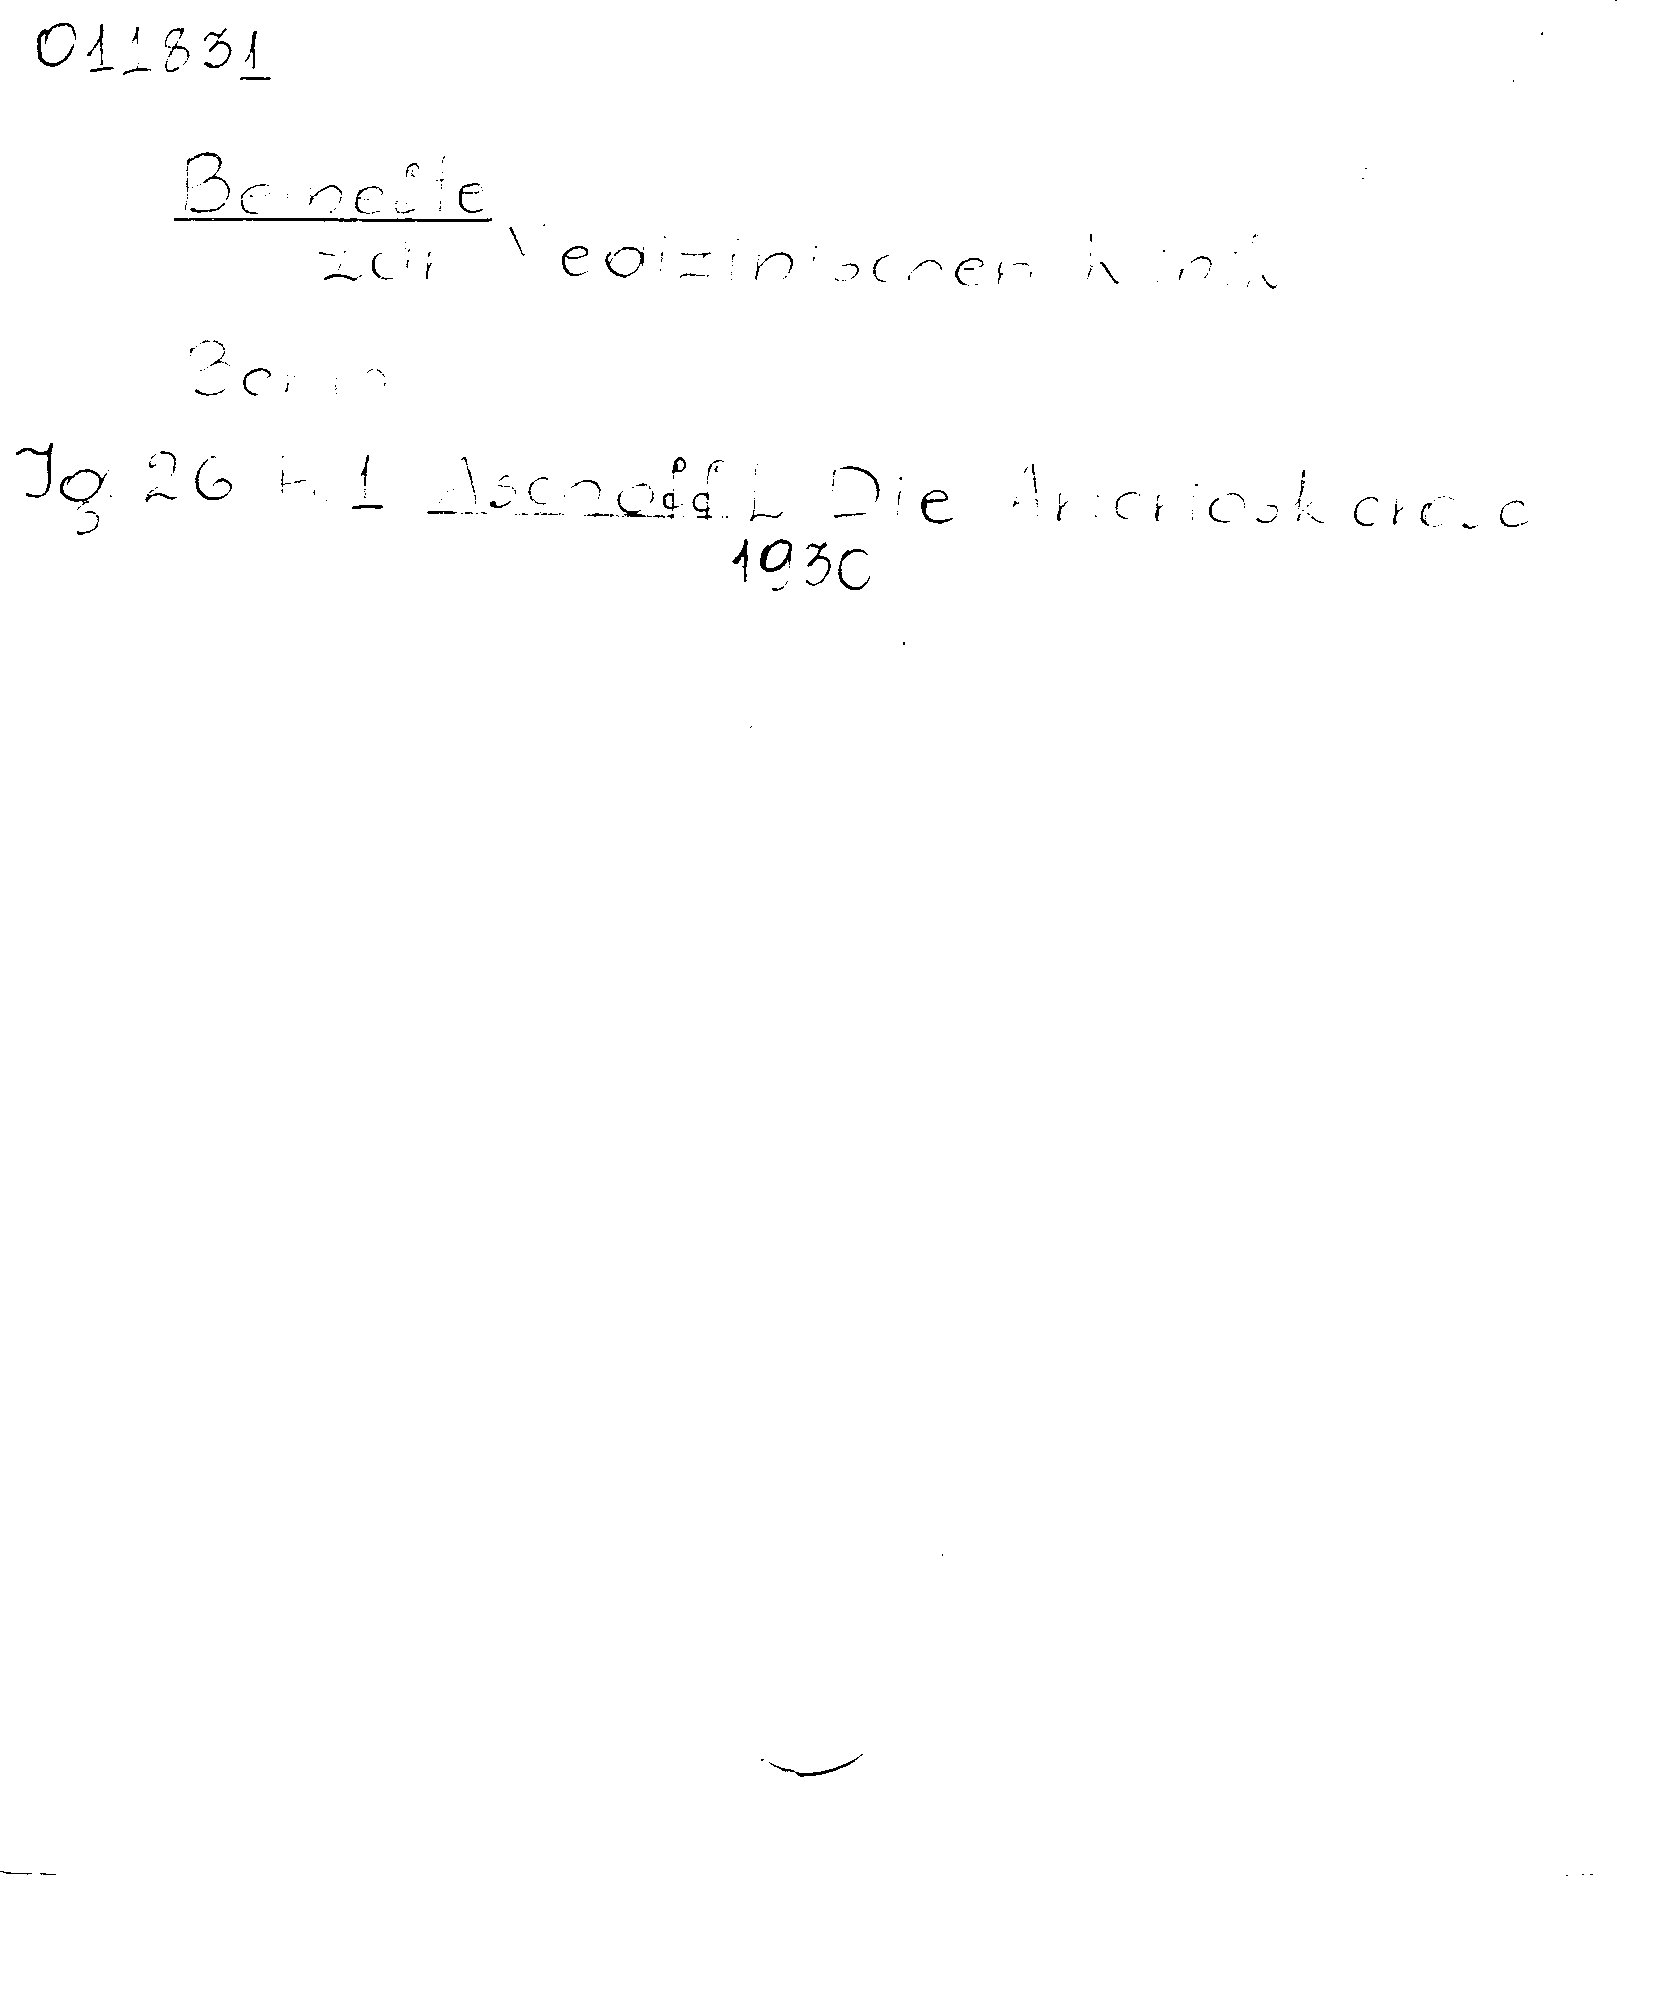 011831
Beihefte
zur Medizinischen Klinik
Berlin
Jg. 26 H. 1 Aschoff L Die Arteriosklerose
1930